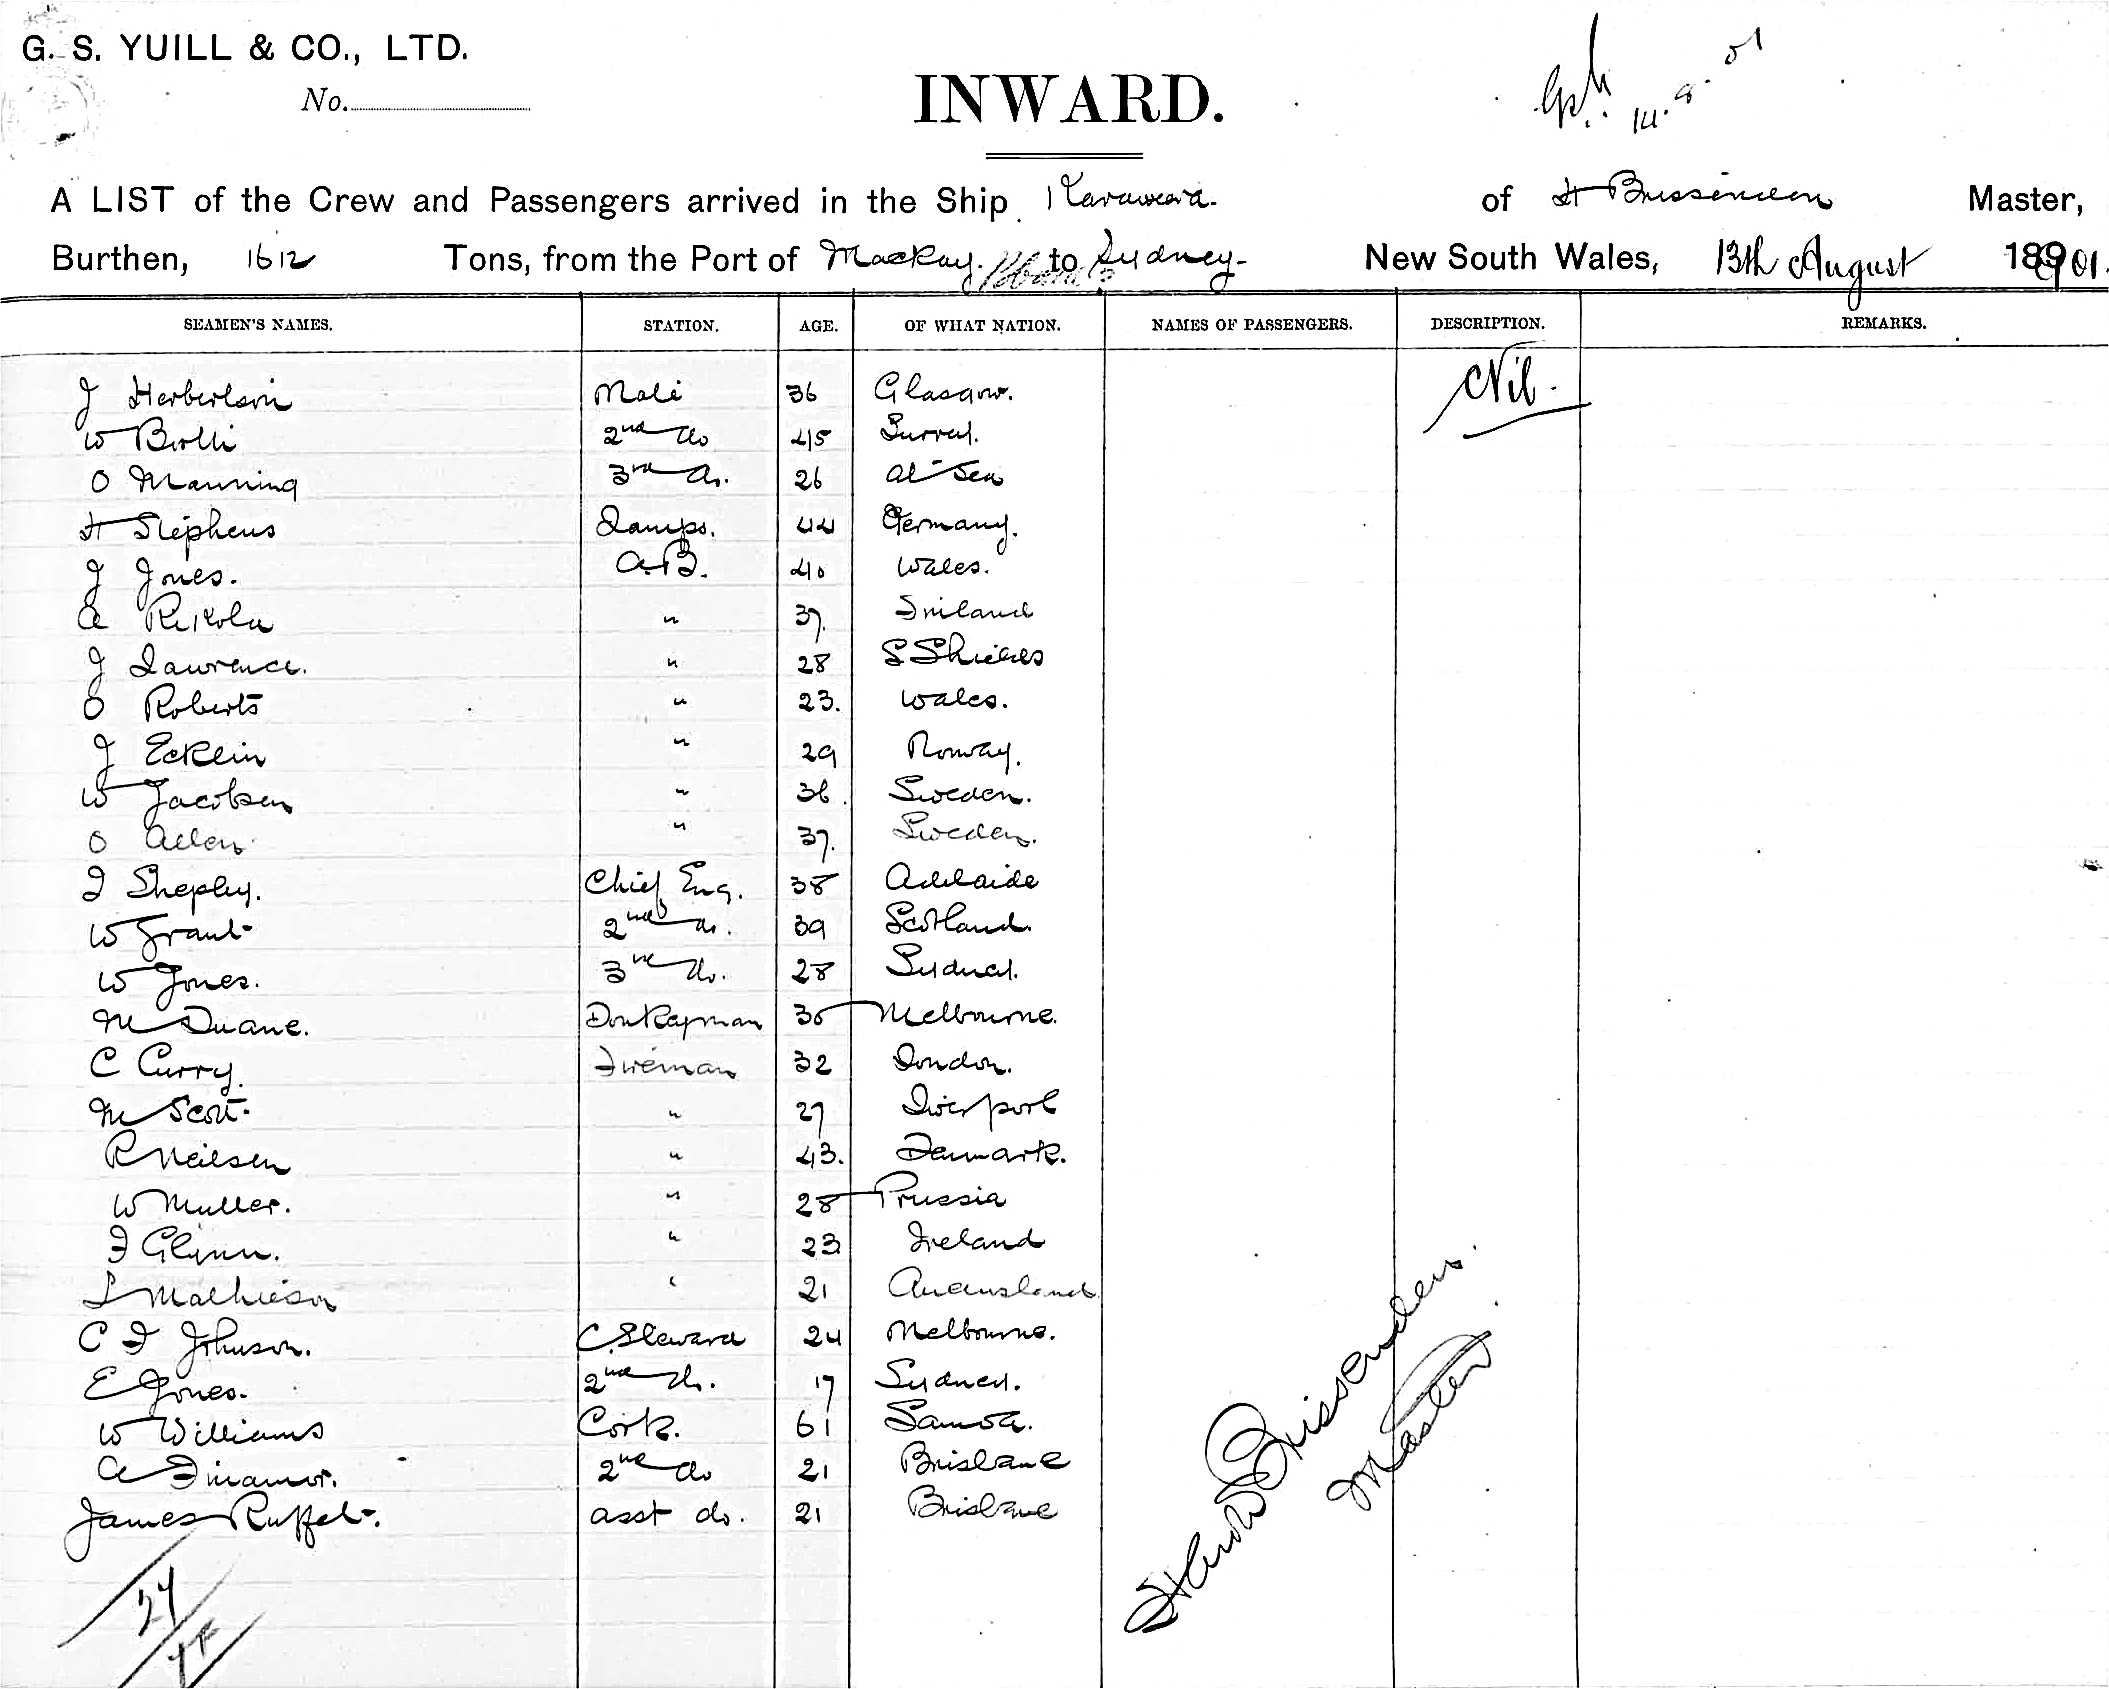 G. S. YUILL & CO., LTD.
No.
INWARD.
14.8.01
A LIST of the Crew and Passengers arrived in the Ship Karaweera. of H Brissenden Master,
Burthen, 1612 Tons, from the Port of Mackay. to Sydney- New South Wales, 13th August 1901.
SEAMEN'S NAMES. STATION. AGE. OF WHAT NATION. NAMES OF PASSENGERS. DESCRIPTION. REMARKS.
J Herbertson Mate 36 Glasgow. Nil.
W 2nd do 45 Surrey.
O Manning 3rd do. 26 At Sea
H Stephens Lamps. 44 Germany.
J Jones. A.B. 40 Wales.
A Rikola " 37. Finland
J Lawrence. " 28 S Shields
O Roberts " 23. Wales.
J Ecklin " 29 Norway.
W Jacobsen " 36. Sweden.
O Allen " 37. Sweden.
F Shepley. Chief Eng. 38 Adelaide
W Grant 2nd do. 39 Scotland.
W Jones. 3rd do. 28 Sydney.
M Duane. Donkeyman 36 Melbourne.
C Curry. Fireman 32 London.
M Scott. " 27 Liverpool
R Neilsen " 43. Denmark.
W Muller. " 28 Prussia
F Glynn. " 23 Ireland
L Mathieson " 21 Queensland
C F Johnson. C. Steward 24 Melbourne.
E Jones. 2nd do. 17 Sydney.
W Williams Cook. 61 Samoa.
A Finamor. 2nd do 21 Brisbane
James Ruffel. asst do. 21 Brisbane
Brissenden
Master